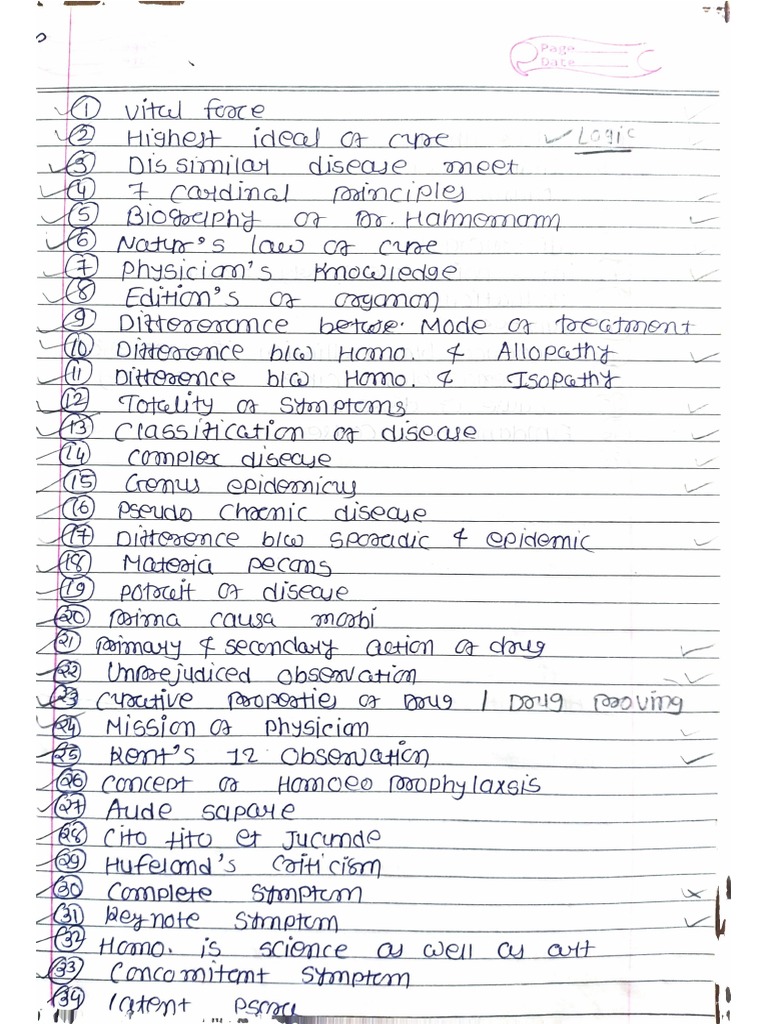 Page
Date
① Vital force
② Highest ideal of cure ✓ Logic
③ Dissimilar disease meet
④ 7 Cardinal principles
⑤ Biography of Dr. Hahnemann
⑥ Natur's law of cure
⑦ Physician's Knowledge
⑧ Edition's of organon
⑨ Differerance betwe. Mode of treatment
⑩ Difference b/w Homo. & Allopathy
⑪ Difference b/w Homo. & Isopathy
⑫ Totality of symptoms
⑬ Classification of disease
⑭ complex disease
⑮ Genus epidemicus
⑯ Pseudo Chronic disease
⑰ Difference b/w sporadic & epidemic
⑱ Materia peccans
⑲ potrait of disease
⑳ prima causa morbi
㉑ primary & secondary action of drug
㉒ Unprejudiced observation
㉓ curative properties of Drug / Drug proving
㉔ Mission of physician
㉕ Kent's 12 observation
㉖ concept of Homoeo prophylaxsis
㉗ Aude sapare
㉘ Cito tito et Jucunde
㉙ Hufeland's criticism
㉚ Complete symptom
㉛ keynote symptom
㉜ Homo. is science as well as art
㉝ Concomitent symptom
㉞ latent psora